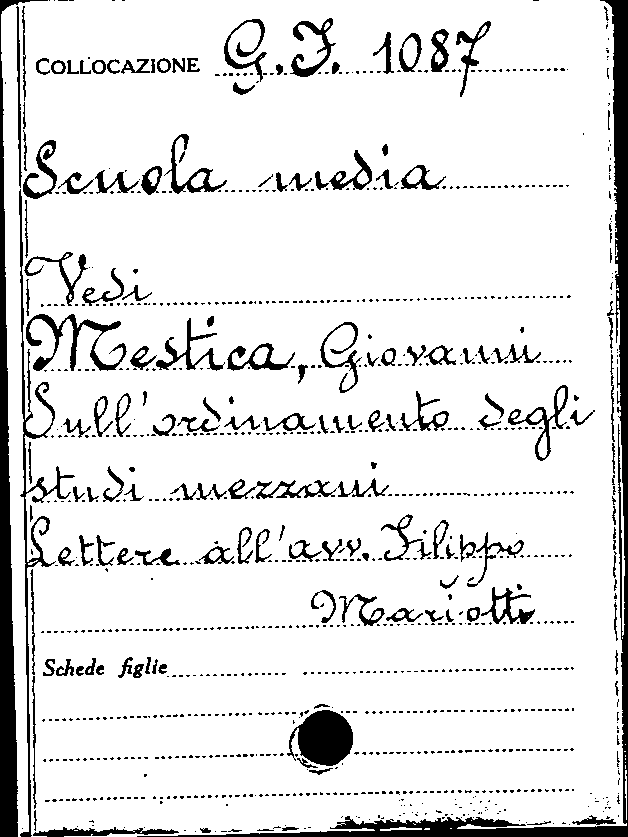 COLLOCAZIONE G.F. 1087
Scuola media
Vedi
Mestica, Giovanni
Sull'ordinamento degli
studi mezzani
Lettere all'avv. Filippo
Mariotti
Schede figlie